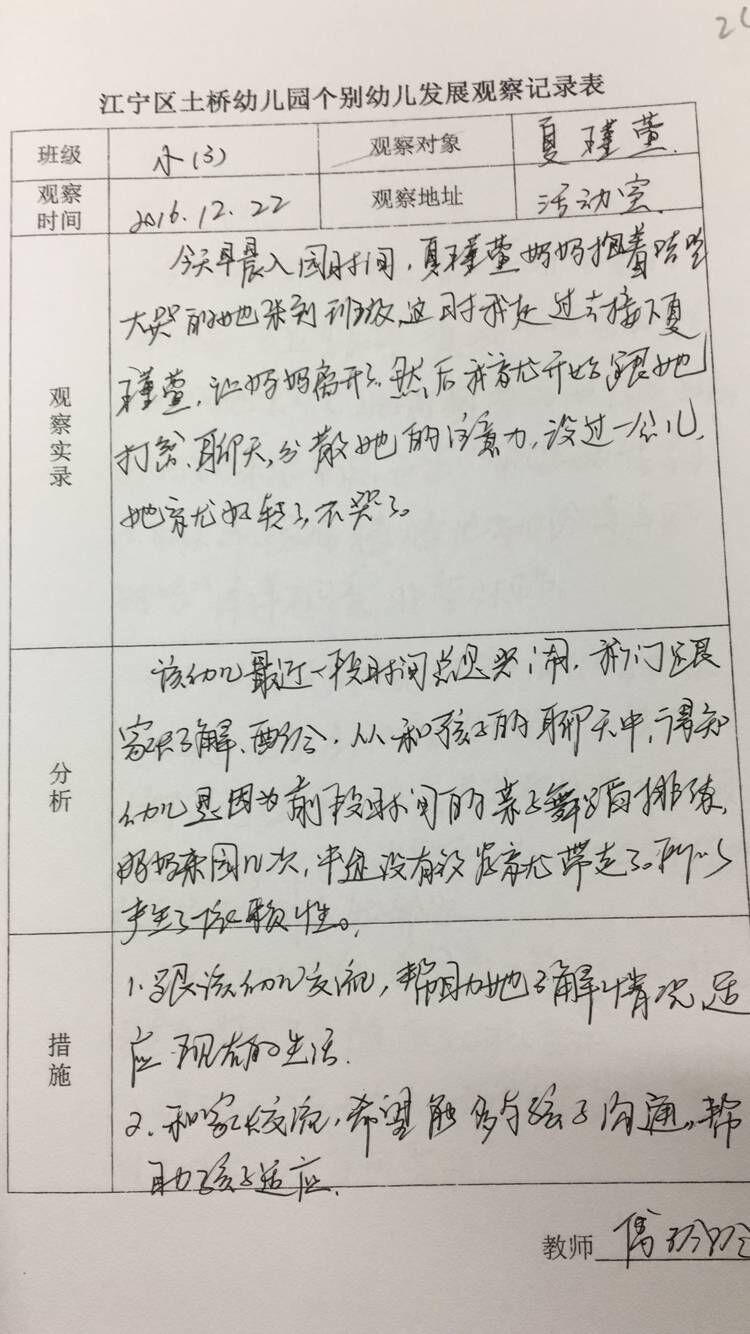 江宁区土桥幼儿园个别幼儿发展观察记录表
班级 小(3) 观察对象 夏瑾萱.
观察时间 2016.12.22 观察地址 活动室.
观察实录
今天早晨入园时间，夏瑾萱妈妈抱着
大哭的她来到班级，这时我赶过去接下夏
瑾萱，让妈妈离开了。然后我就开始跟她
打岔、聊天，分散她的注意力，没过一会儿，
她就好转了，不哭了。
分析
该幼儿最近一段时间总是哭闹，我们跟
家长了解、配合，从和孩子的聊天中，得知
幼儿是因为前段时间的亲子舞蹈排练，
妈妈来园几次，中途没有放学就带走了。所以
产生了依赖性。
措施
1.跟该幼儿交流，帮助她了解情况，适
应现在的生活.
2.和家长交流，希望能多与孩子沟通，帮
助孩子适应.
教师